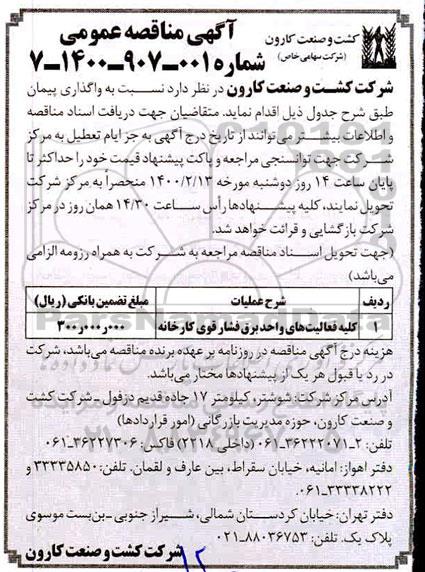 کشت و صنعت کارون
(شرکت سهامی خاص)
آگهی مناقصه عمومی
شماره ۰۰۱-۹۰۷-۱۴۰۰-۷
شرکت کشت و صنعت کارون در نظر دارد نسبت به واگذاری پیمان
طبق شرح جدول ذیل اقدام نماید. متقاضیان جهت دریافت اسناد مناقصه
و اطلاعات بیشتر می‌توانند از تاریخ درج آگهی به جز ایام تعطیل به مرکز
شرکت جهت توانسنجی مراجعه و پاکت پیشنهاد قیمت خود را حداکثر تا
پایان ساعت ۱۴ روز دوشنبه مورخه ۱۴۰۰/۲/۱۳ منحصراً به مرکز شرکت
تحویل نمایند، کلیه پیشنهادها رأس ساعت ۱۴/۳۰ همان روز در مرکز
شرکت بازگشایی و قرائت خواهد شد.
(جهت تحویل اسناد مناقصه مراجعه به شرکت به همراه رزومه الزامی
می‌باشد)
ردیف شرح عملیات مبلغ تضمین بانکی (ریال)
۱ کلیه فعالیت‌های واحد برق فشار قوی کارخانه ۳۰۰ر۰۰۰ر۰۰۰
هزینه درج آگهی مناقصه در روزنامه بر عهده برنده مناقصه می‌باشد، شرکت
در رد یا قبول هر یک از پیشنهادها مختار می‌باشد.
آدرس مرکز شرکت: شوشتر، کیلومتر ۱۷ جاده قدیم دزفول ـ شرکت کشت
و صنعت کارون، حوزه مدیریت بازرگانی (امور قراردادها)
تلفن: ۲-۳۶۲۲۲۰۷۱-۰۶۱ (داخلی ۲۲۱۸) فاکس: ۳۶۲۲۷۳۰۶-۰۶۱
دفتر اهواز: امانیه، خیابان سقراط، بین عارف و لقمان. تلفن: ۳۳۳۳۵۸۵۰ و
۳۳۳۳۸۲۲۲-۰۶۱.
دفتر تهران: خیابان کردستان شمالی، شیراز جنوبی ـ بن‌بست موسوی
پلاک یک. تلفن: ۸۸۰۳۶۷۵۳-۰۲۱
شرکت کشت و صنعت کارون
۱۲
ParsNamadData